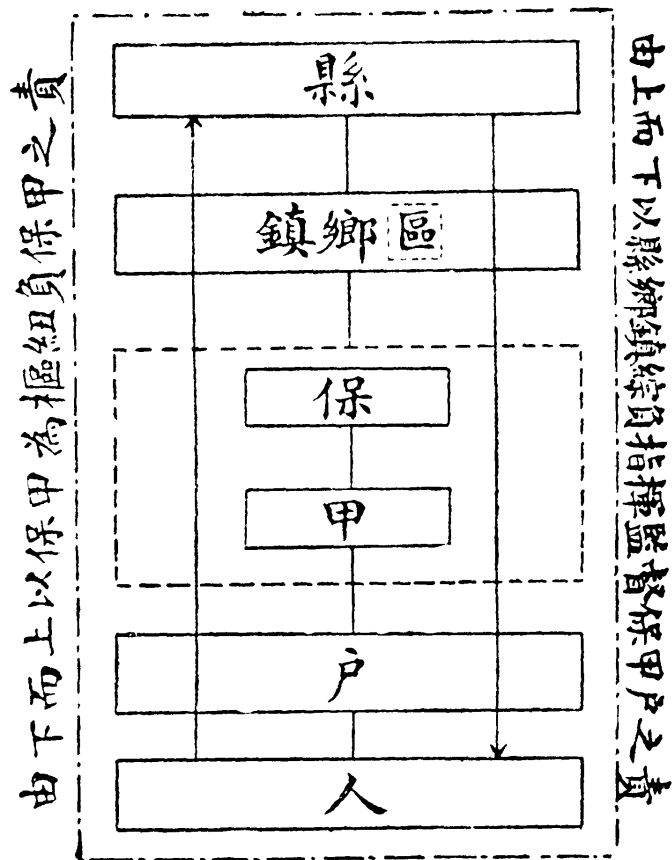 由上而下以縣鄉鎮綜負指揮監督保甲户之責
縣
區鄉鎮
保
甲
户
人
由下而上以保甲為樞紐負保甲之責